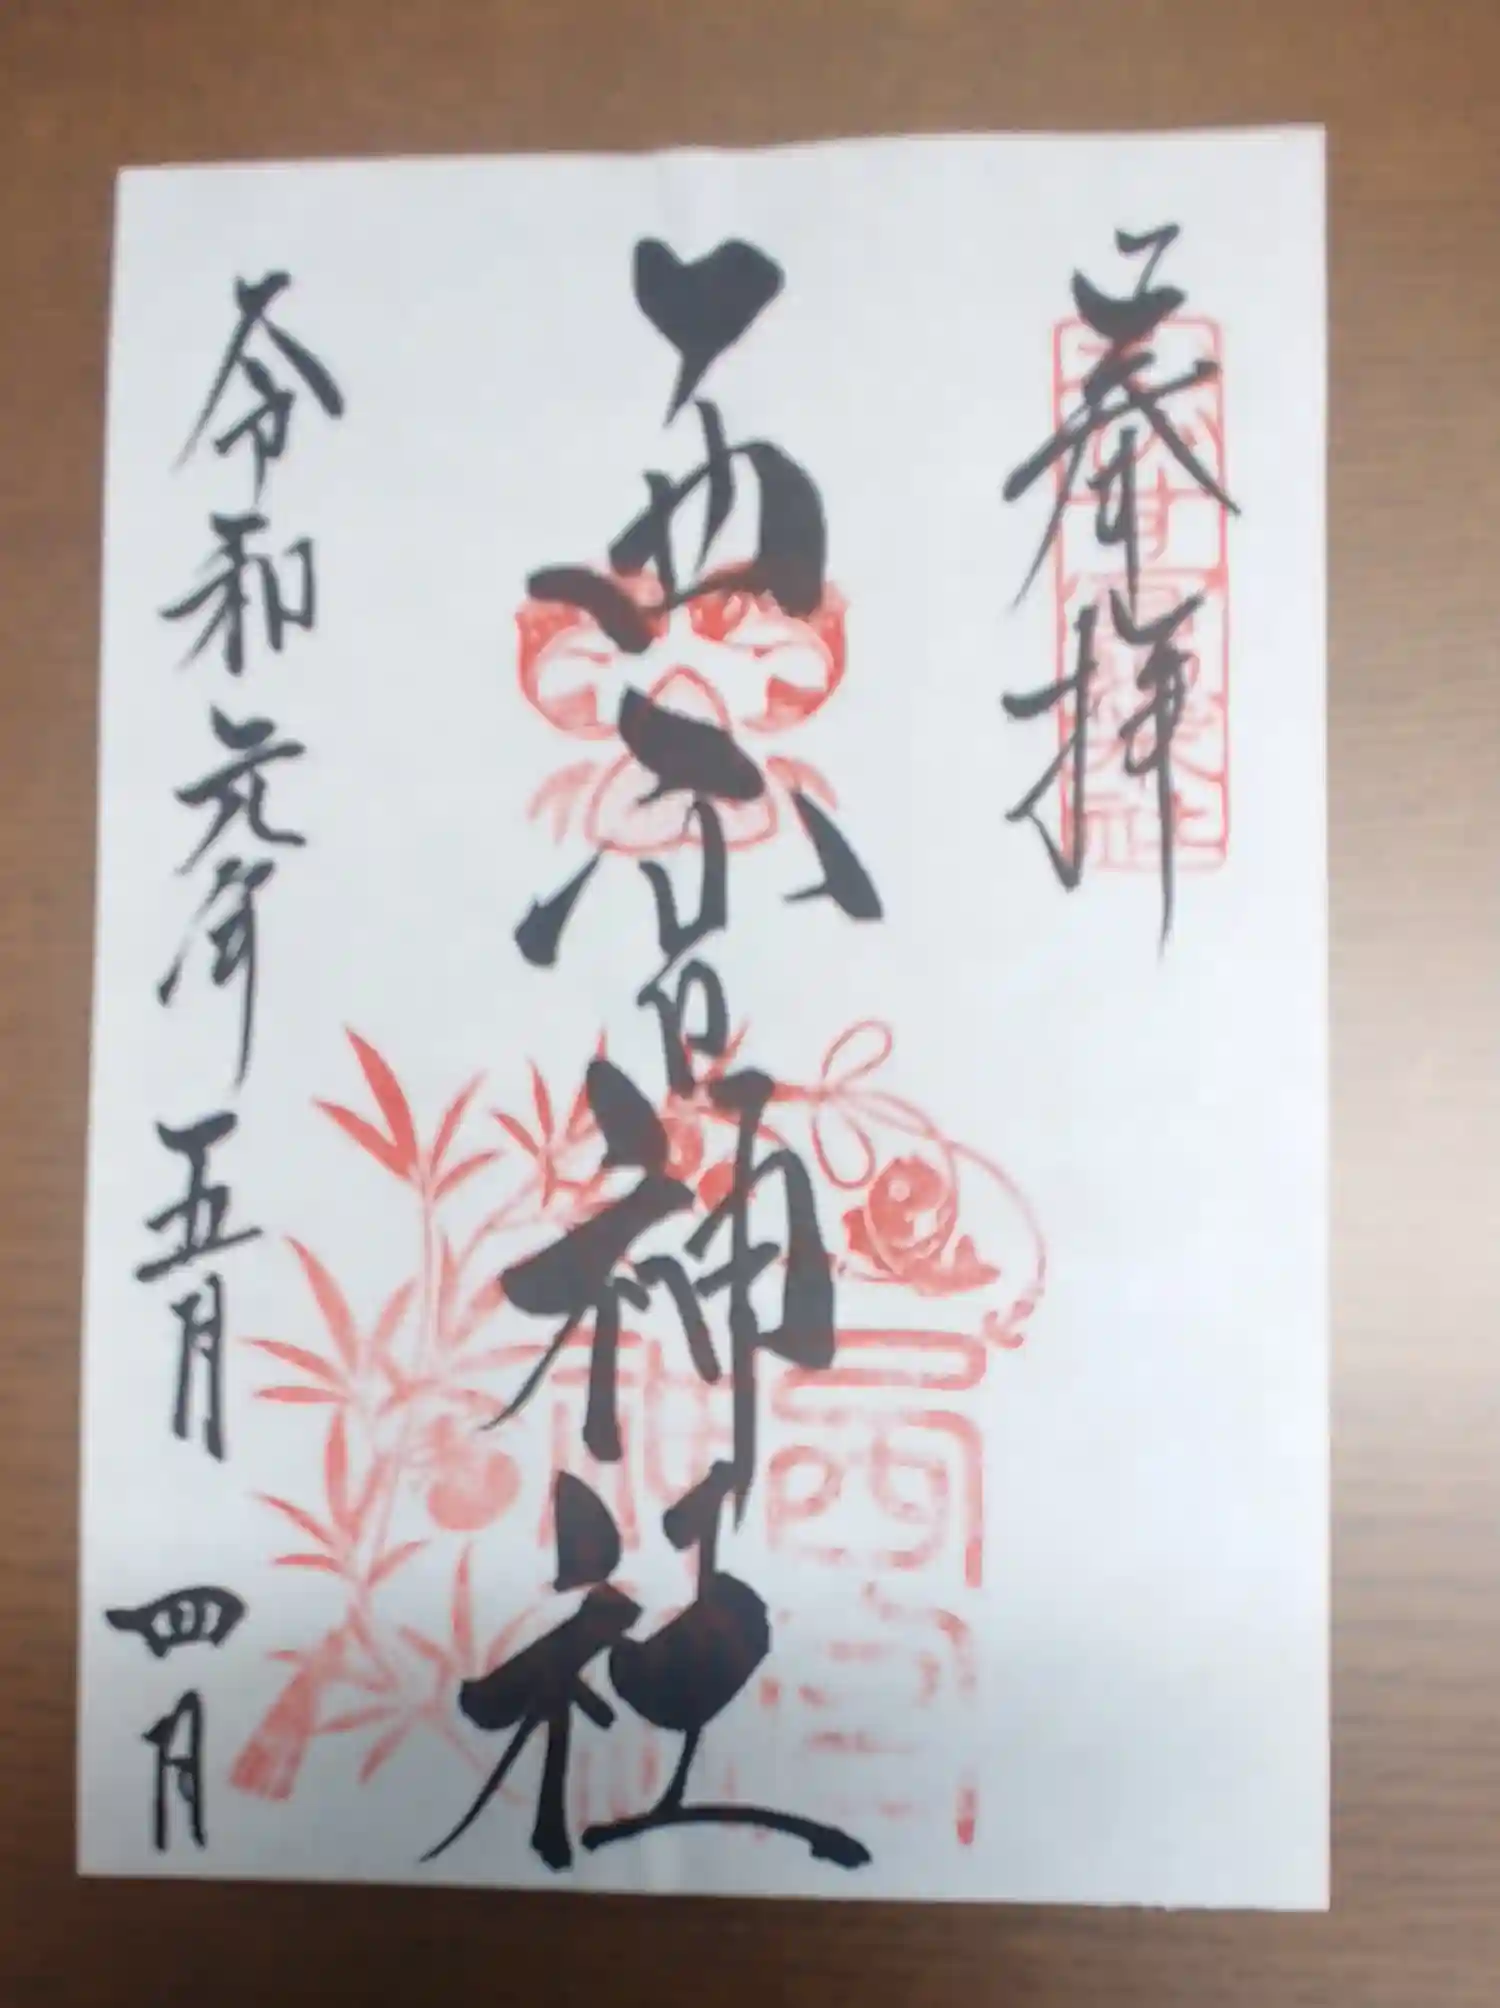 奉拝
西宮神社
令和元年五月四日